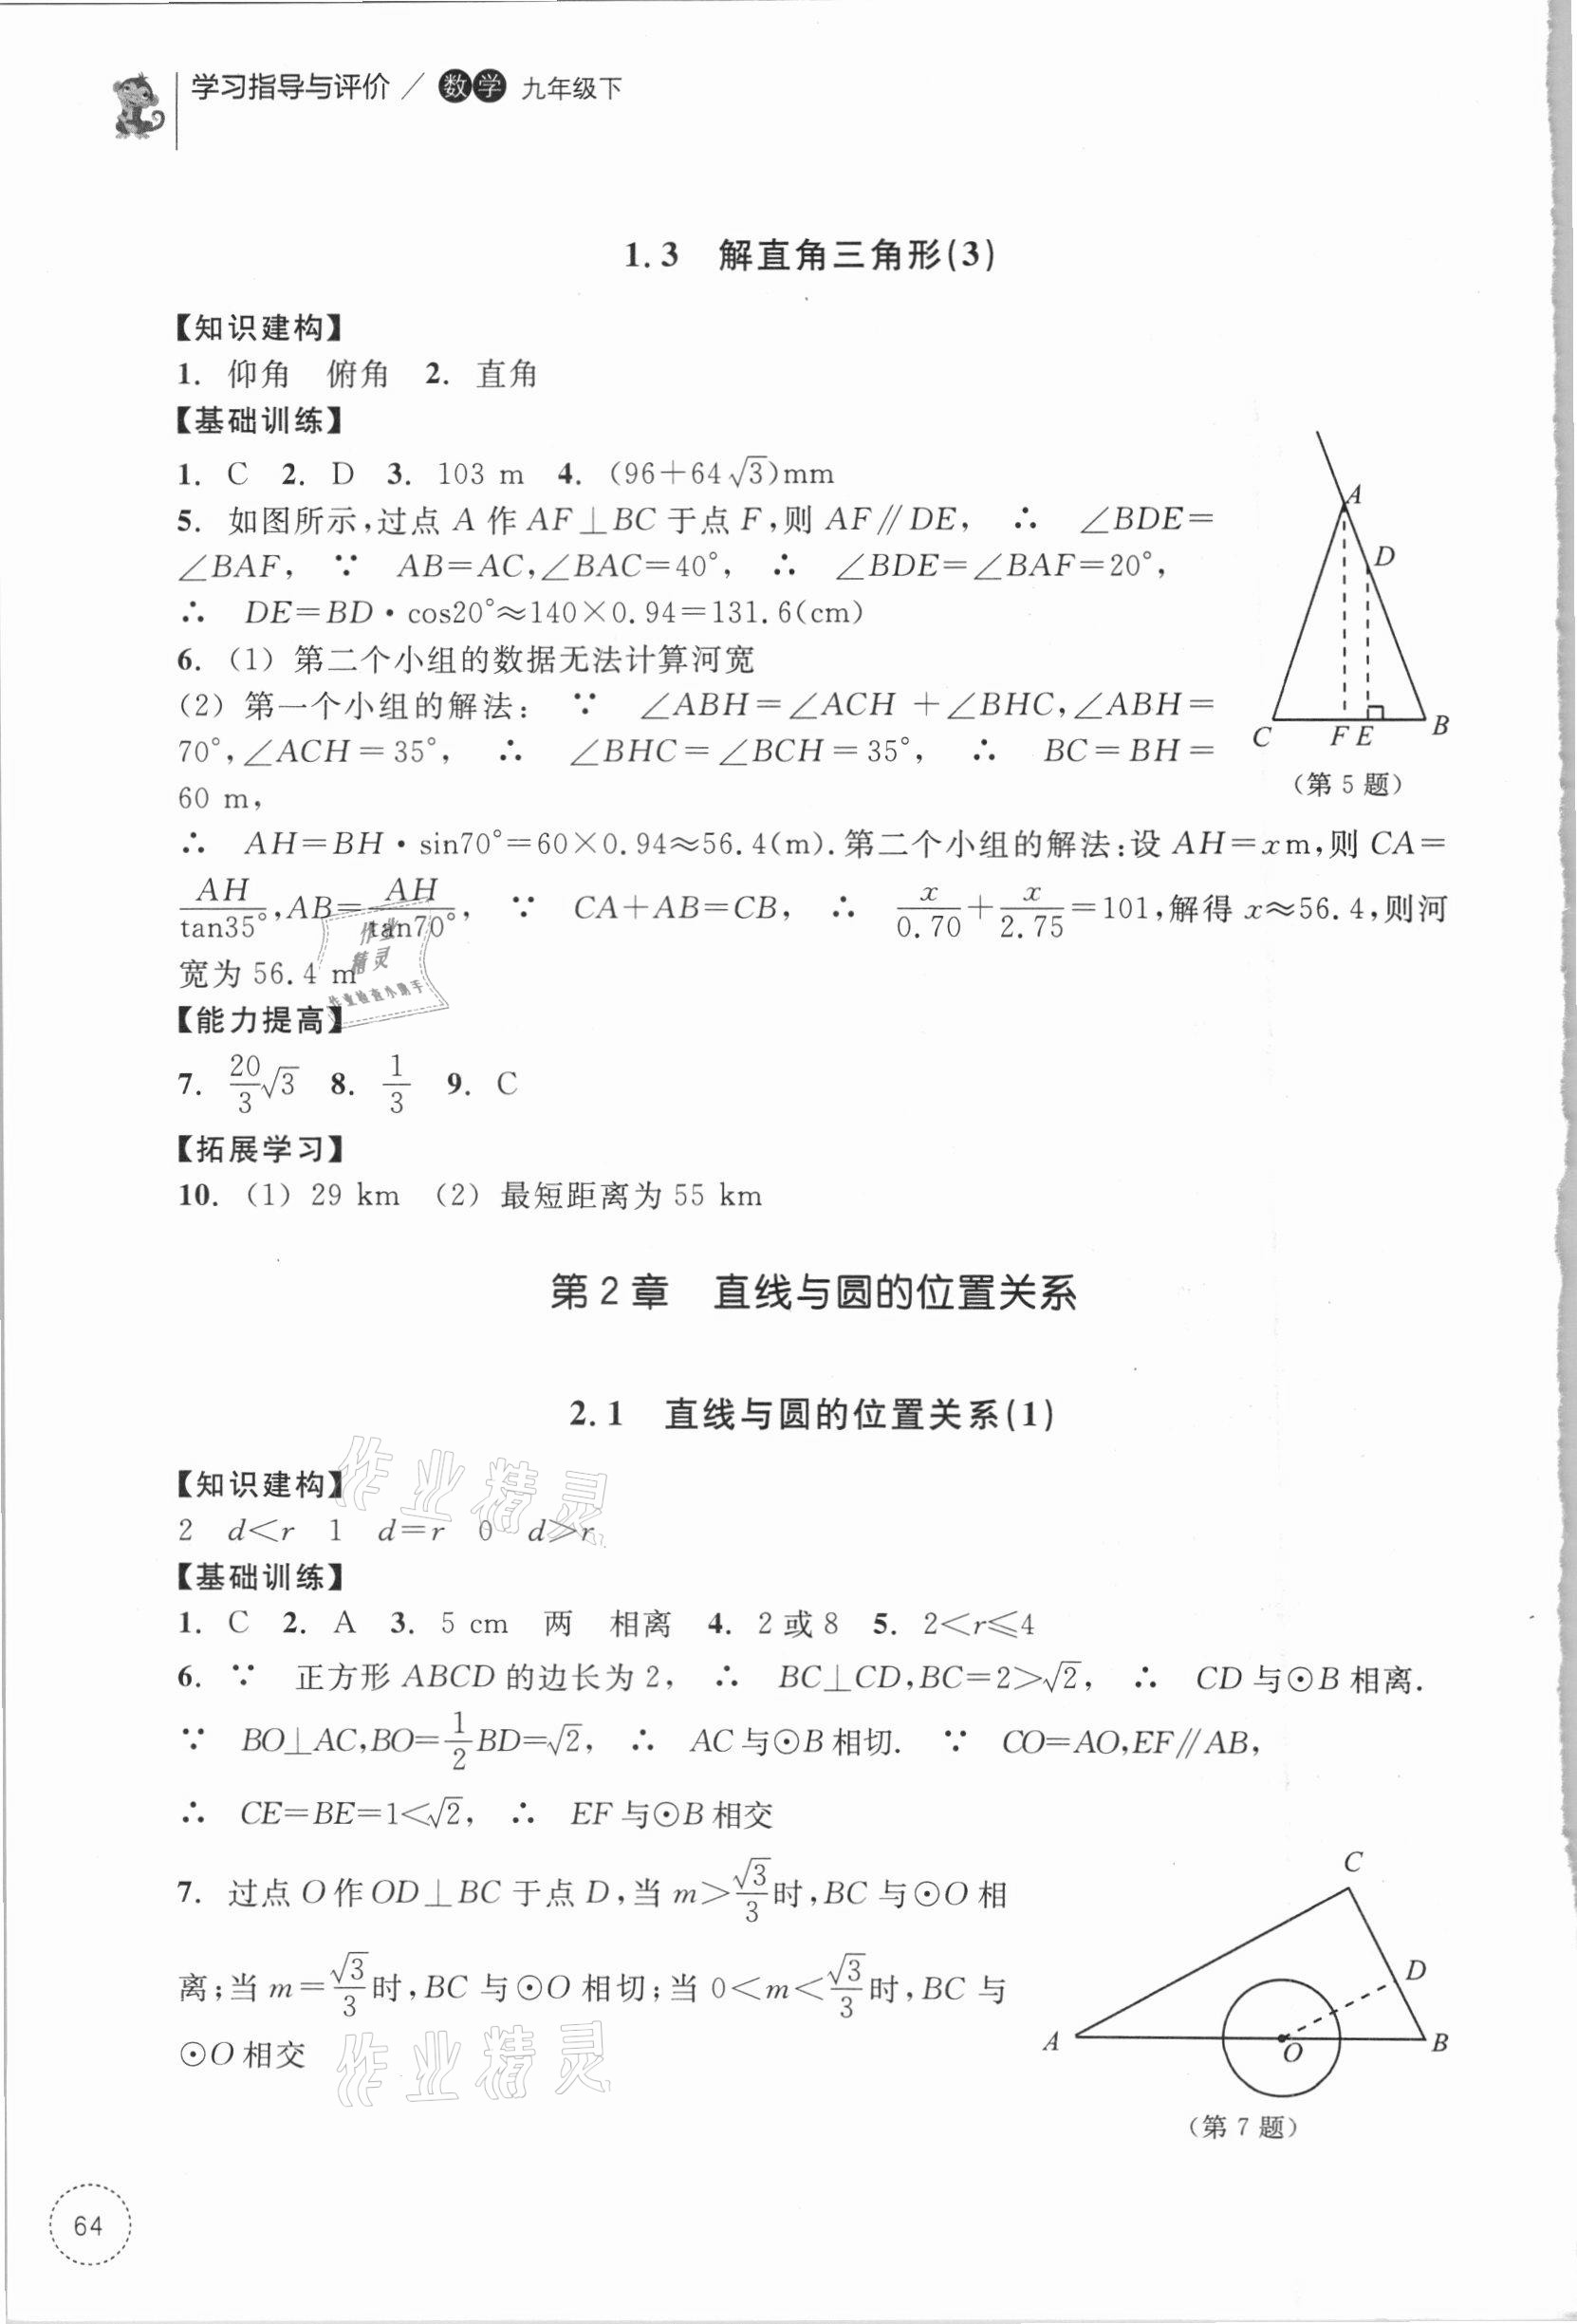 学习指导与评价 / 数学 九年级下
1.3 解直角三角形(3)
【知识建构】
1. 仰角 俯角 2. 直角
【基础训练】
1. C 2. D 3. 103 m 4. (96+64√3)mm
5. 如图所示,过点 A 作 AF⊥BC 于点 F,则 AF∥DE, ∴ ∠BDE=
∠BAF, ∵ AB=AC,∠BAC=40°, ∴ ∠BDE=∠BAF=20°,
∴ DE=BD·cos20°≈140×0.94=131.6(cm)
6. (1) 第二个小组的数据无法计算河宽
(2) 第一个小组的解法: ∵ ∠ABH=∠ACH+∠BHC,∠ABH=
70°,∠ACH=35°, ∴ ∠BHC=∠BCH=35°, ∴ BC=BH=
60 m,
A
D
C F E B
(第 5 题)
∴ AH=BH·sin70°=60×0.94≈56.4(m).第二个小组的解法:设 AH=x m,则 CA=
AH/tan35°,AB=AH/tan70°, ∵ CA+AB=CB, ∴ x/0.70+x/2.75=101,解得 x≈56.4,则河
宽为 56.4 m
作业
精灵
作业检查小助手
【能力提高】
7. 20/3√3 8. 1/3 9. C
【拓展学习】
10. (1) 29 km (2) 最短距离为 55 km
第 2 章 直线与圆的位置关系
2.1 直线与圆的位置关系(1)
【知识建构】
作业精灵
2 d<r 1 d=r 0 d>r
【基础训练】
1. C 2. A 3. 5 cm 两 相离 4. 2 或 8 5. 2<r≤4
6. ∵ 正方形 ABCD 的边长为 2, ∴ BC⊥CD,BC=2>√2, ∴ CD 与⊙B 相离.
∵ BO⊥AC,BO=1/2BD=√2, ∴ AC 与⊙B 相切. ∵ CO=AO,EF∥AB,
∴ CE=BE=1<√2, ∴ EF 与⊙B 相交
7. 过点 O 作 OD⊥BC 于点 D,当 m>√3/3时,BC 与⊙O 相
离;当 m=√3/3时,BC 与⊙O 相切;当 0<m<√3/3时,BC 与
⊙O 相交
作业精灵
C
D
A O B
(第 7 题)
64